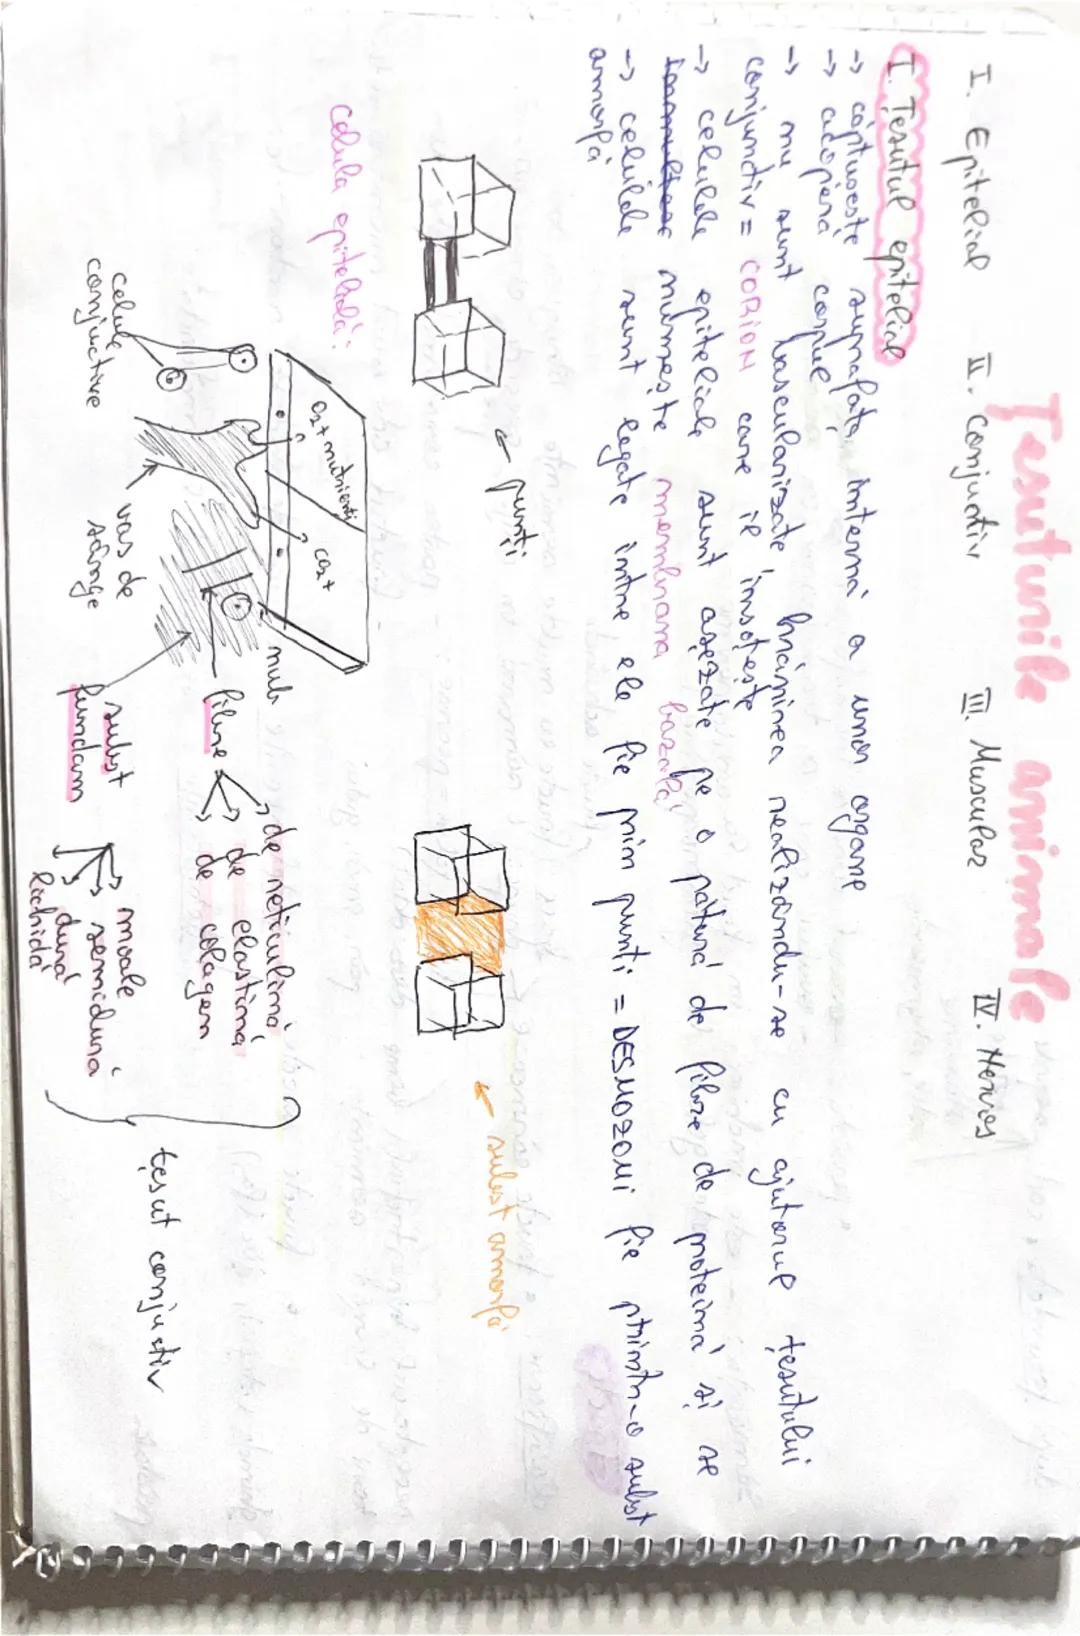 Tesuturile animale
I. Epitelial II. Conjuctiv III. Muscular IV. Nervos
I. Tesutul epitelial
-> căptușește suprafața internă a unor organe
-> acoperă corpul
-> nu sunt vascularizate hrănirea realizându-se cu ajutorul țesutului
conjunctiv = CORION care îl însoțește
-> celulele epiteliale sunt așezate pe o pătură de fibre de proteină și se
numește membrana bazală
-> celulele sunt legate între ele fie prin punți = DESMOZOMI fie printr-o subst
amorfă
<- punți
<- subst amorfă
Celula epitelială:
O2 + nutrienți
CO2 +
celule
conjuctive
vas de
sânge
fibre
de reticulină
de elastină
de colagen
subst
fundam
moale
semidură
dură
lichidă
țesut conjuctiv